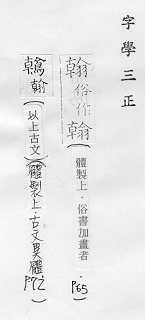 字學三正
翰俗作翰(體製上·俗書加畫者·P65)
翰(以上古文)(體製上·古文異體P72)